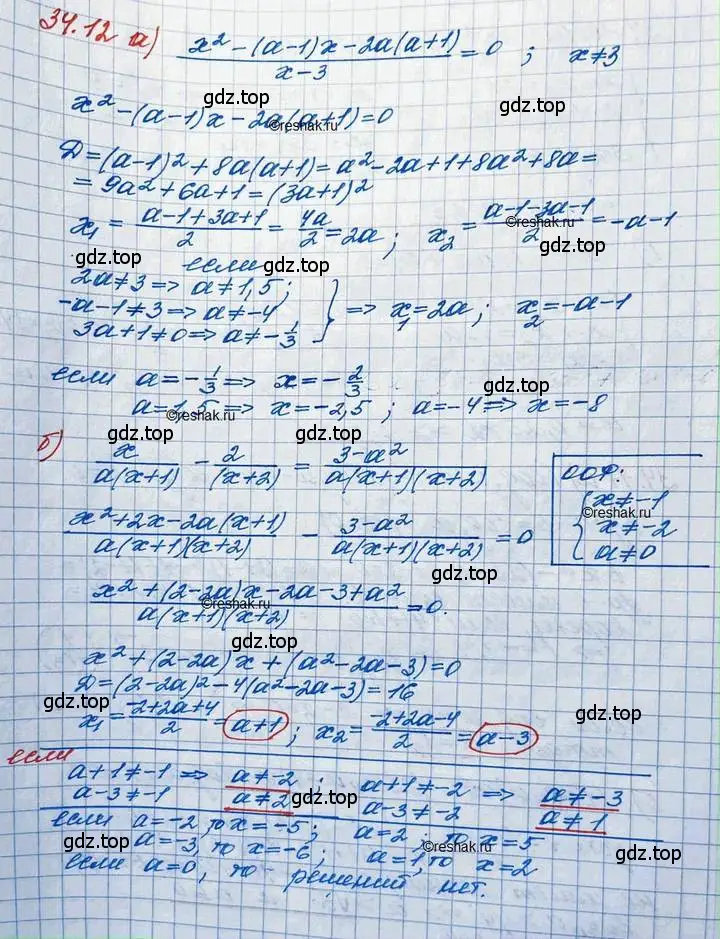 34.12 а) (x² - (a-1)x - 2a(a+1))/(x-3) = 0 ; x ≠ 3
gdz.top gdz.top
x² - (a-1)x - 2a(a+1) = 0
©reshak.ru
D = (a-1)² + 8a(a+1) = a² - 2a + 1 + 8a² + 8a =
= 9a² + 6a + 1 = (3a+1)²
gdz.top
x₁ = (a-1+3a+1)/2 = 4a/2 = 2a ; x₂ = (a-1-3a-1)/2 = -a-1
©reshak.ru
gdz.top gdz.top
если
2a ≠ 3 => a ≠ 1,5 ;
-a-1 ≠ 3 => a ≠ -4 } => x₁ = 2a ; x₂ = -a-1
3a+1 ≠ 0 => a ≠ -1/3
если a = -1/3 => x = -2/3
gdz.top
a = 1,5 => x = -2,5 ; a = -4 => x = -8
©reshak.ru
gdz.top gdz.top
б) x/(a(x+1)) - 2/(x+2) = (3-a²)/(a(x+1)(x+2))
ООФ:
{ x ≠ -1
©reshak.ru
x ≠ -2
a ≠ 0
(x²+2x-2a(x+1))/(a(x+1)(x+2)) - (3-a²)/(a(x+1)(x+2)) = 0
gdz.top
(x²+(2-2a)x-2a-3+a²)/(a(x+1)(x+2)) = 0.
©reshak.ru
gdz.top
x² + (2-2a)x + (a²-2a-3) = 0
D = (2-2a)² - 4(a²-2a-3) = 16
gdz.top gdz.top
x₁ = (-2+2a+4)/2 = a+1 ; x₂ = (-2+2a-4)/2 = a-3
если
a+1 ≠ -1 => a ≠ -2 ; a+1 ≠ -2 => a ≠ -3
a-3 ≠ -1 a ≠ 2 gdz.top a-3 ≠ -2 a ≠ 1
если a = -2, то x = -5 ; a = 2 ; то x = 5
gdz.top ©reshak.ru gdz.top
a = -3, то x = -6 ; a = 1, то x = 2
если a = 0, то решений нет.
gdz.top